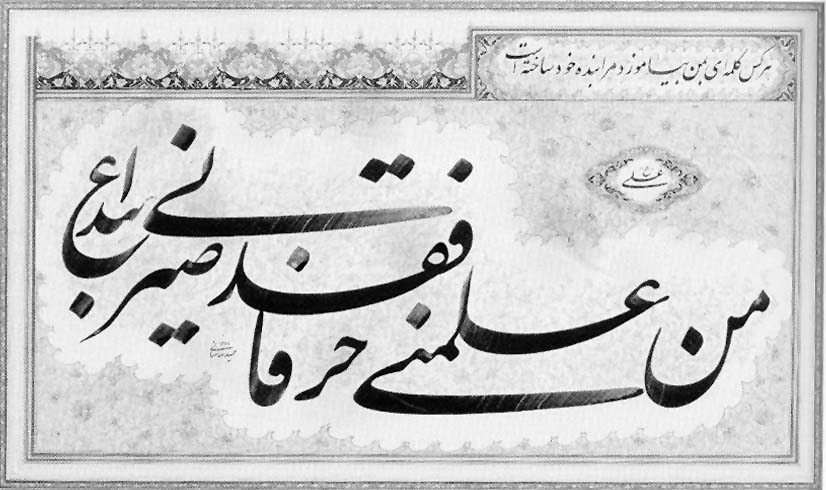 هر کس کلمه‌ای بمن بیاموزد مرا بنده خود ساخته است
علی ع
من علمنی حرفا فقد صیرنی عبدا